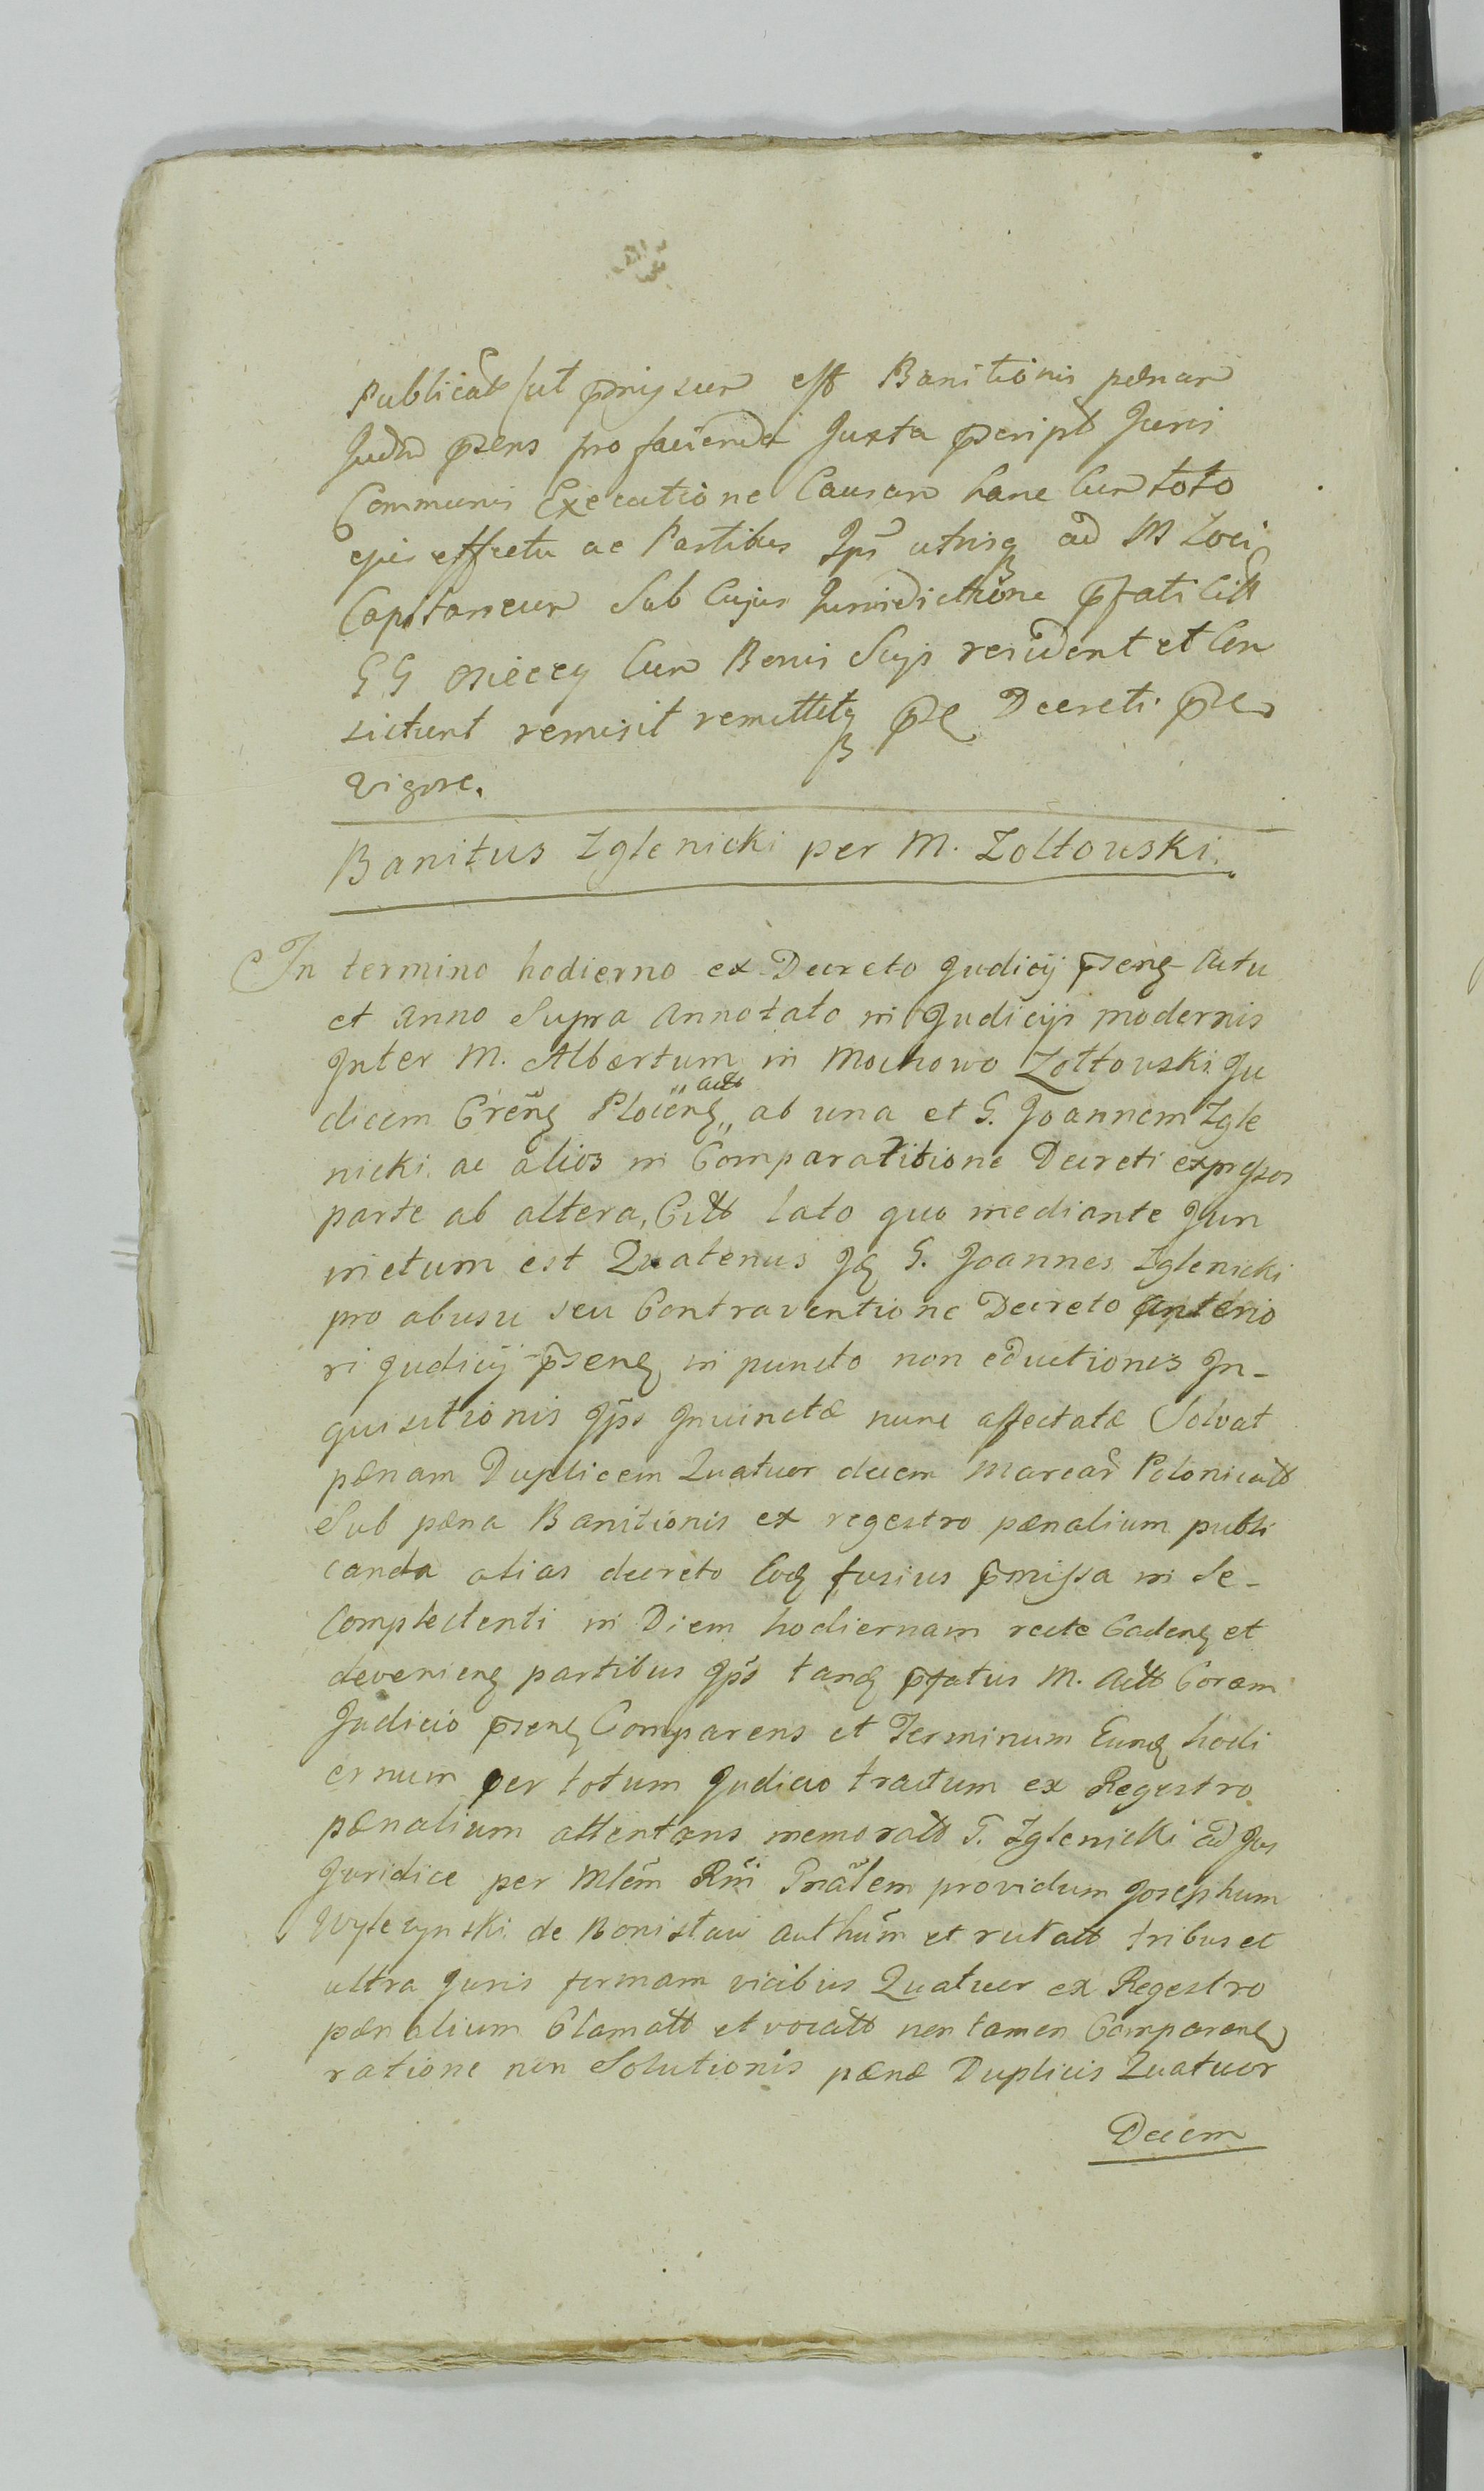 Publicat ut pmissum est Banitionis pænam
Judm psens pro facienda Juxta pscript Juris
Communis Executione Causam hanc Cum toto
ejus effectu ac Partibus Ips utrisq ad M Loci
Capitaneum Sub Cujus Jurisdictione pfati Citt
GG osieccy Cum Bonis Suys resident et Con
sistunt remisit remittitq Decreti
vigore.
Banitus Zglenicki per M. Zoltowski.
In termino hodierno ex Decreto Judicij psenq Actu
et Anno Supra Annotato in Judicijs modernis
Inter M. Albertum in Mochowo Zoltowski Ju
dicem Crenq Plocenq Actt ab una et G. Joannem Zgle
nicki ac alios in Comparatitione Decreti expressos
parte ab altera, Citt lato quo mediante Jun
inctum est Quatenus G. Joannes Zglenicki
pro abusu seu Contraventione Decreto Anterio
ri Judicij psenq in puncto non eductionis In-
quisitionis Ips Injunctæ nunc affectatæ Solvat
pænam Duplicem Quatuor decem Marcar Polonicatt
Sub pæna Banitionis ex regestro pænalium publi
canda alias decreto Eoq fusius pmissa in Se-
Complectenti in Diem hodiernam recte Cadenq et
devenienq partibus Ips tanq pfatus M. Actt Coram
Judicio psenq Comparens et Terminum Eunq hodi
ernum per totum Judicio tractum ex Regestro
pænalium attentans memoratt G. Zglenicki ad Jus
Juridice per Mlem Rni Gnalem providum Josephum
Wylezynski de Bonislaw authum et rutatt tribus et
ultra Juris formam vicibus Quatuor ex Regestro
pænalium Clamatt et vocatt non tamen Comparenq
ratione non Solutionis pænæ Duplicis Quatuor
Decem